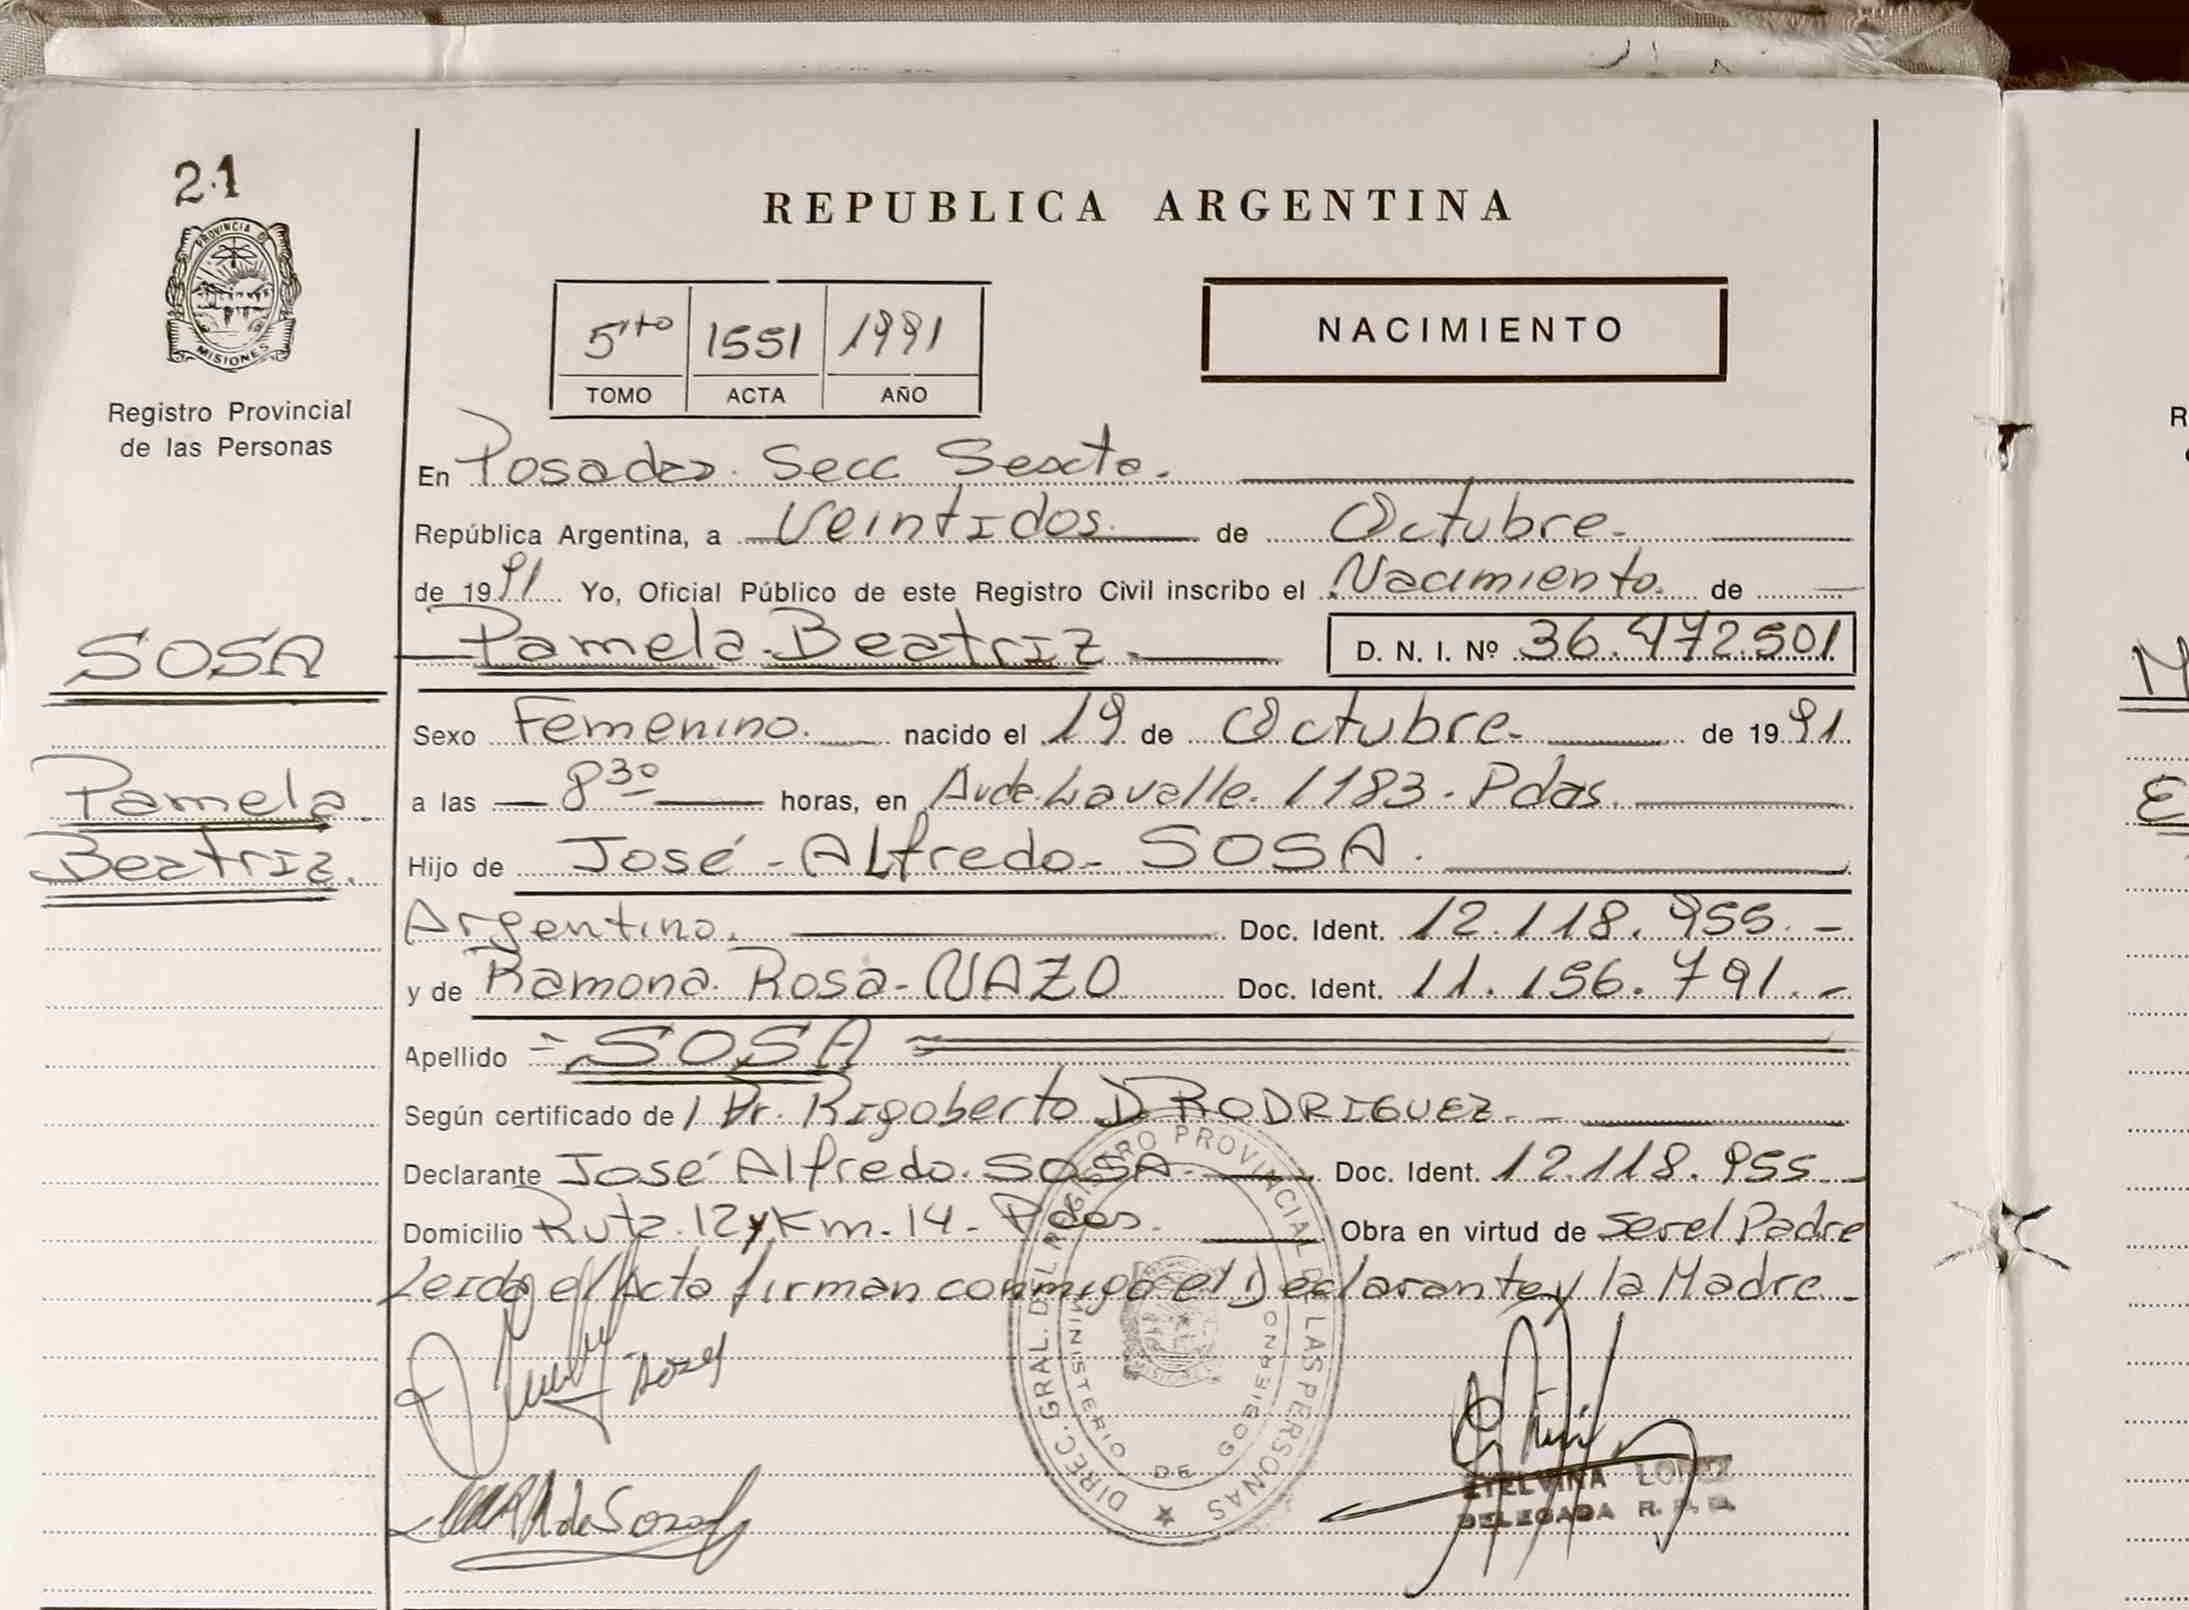 21
PROVINCIA DE
MISIONES
Registro Provincial
de las Personas
SOSA
Pamela
Beatriz.
REPUBLICA ARGENTINA
5to 1551 1991
TOMO ACTA AÑO
NACIMIENTO
En Posadas. Secc Sexta.
República Argentina, a Veintidos de Octubre.
de 1991 Yo, Oficial Público de este Registro Civil inscribo el Nacimiento. de
Pamela Beatriz. D. N. I. Nº 36.472.501
Sexo Femenino. nacido el 19 de Octubre. de 1991.
a las 8 30 horas, en Avda. Lavalle. 1183. Pdas.
Hijo de José - Alfredo - SOSA.
Argentino. Doc. Ident. 12.118.955.-
y de Ramona. Rosa - NAZO Doc. Ident. 11.156.791.-
Apellido = SOSA =
Según certificado de / Dr. Rigoberto D RODRIGUEZ.-
Declarante José Alfredo. SOSA. Doc. Ident. 12.118.955
Domicilio Ruta. 12 y Km. 14 - Pdas. Obra en virtud de ser el Padre
Leida el Acta firman conmigo el Declarante y la Madre.
DIREC. GRAL. DEL REGISTRO PROVINCIAL DE LAS PERSONAS
MINISTERIO DE GOBIERNO
de Sosa
ETELVINA LOPEZ
DELEGADA R. P. P.
R